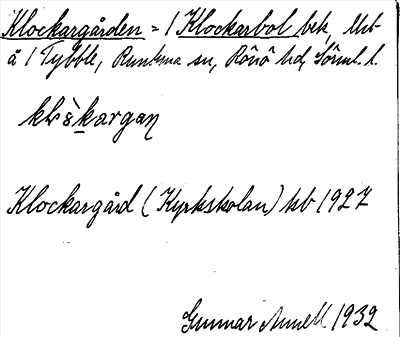 Klockargården = 1 Klockarbol bek, Utb
å 1 Tybble, Runtuna sn, Rönö hd, Södml. l.
Klockargård (Kyrkskolan) kb 1927
Gunnar Annell 1932